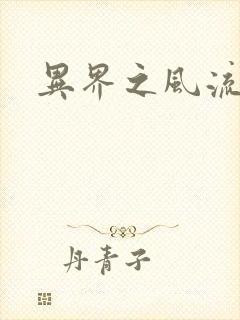 異界之風流
丹青子